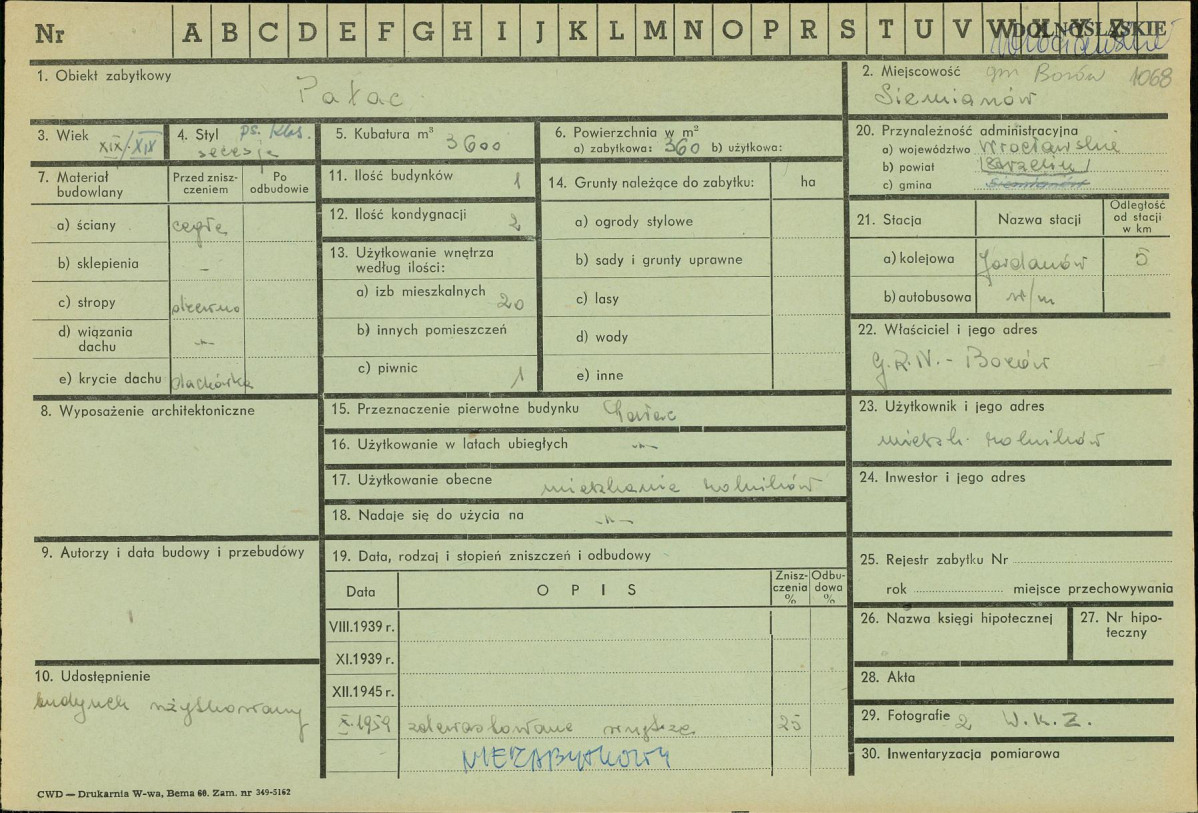 Nr A B C D E F G H I J K L M N O P R S T U V W X Y Z DOLNOŚLĄSKIE
1. Obiekt zabytkowy
Pałac
2. Miejscowość gm Borów 1068
Siemianów
3. Wiek XIX/XIX
4. Styl ps. klas.
secesja
5. Kubatura m³ 3600
6. Powierzchnia w m²
a) zabytkowa: 360 b) użytkowa:
20. Przynależność administracyjna
a) województwo Wrocławskie
b) powiat Strzelin
c) gmina Siemianów
7. Materiał budowlany
Przed zniszczeniem
Po odbudowie
a) ściany cegła
b) sklepienia –
c) stropy drewno
d) wiązania dachu -"-
e) krycie dachu dachówka
11. Ilość budynków 1
12. Ilość kondygnacji 2
13. Użytkowanie wnętrza według ilości:
a) izb mieszkalnych 20
b) innych pomieszczeń
c) piwnic 1
14. Grunty należące do zabytku: ha
a) ogrody stylowe
b) sady i grunty uprawne
c) lasy
d) wody
e) inne
21. Stacja
Nazwa stacji
Odległość od stacji w km
a) kolejowa Jordanów 5
b) autobusowa w/m
22. Właściciel i jego adres
G.R.N. - Borów
8. Wyposażenie architektoniczne
15. Przeznaczenie pierwotne budynku Pałac
16. Użytkowanie w latach ubiegłych -"-
17. Użytkowanie obecne mieszkanie rolników
18. Nadaje się do użycia na -"-
23. Użytkownik i jego adres
mieszk. rolników
24. Inwestor i jego adres
9. Autorzy i data budowy i przebudówy
19. Data, rodzaj i stopień zniszczeń i odbudowy
Data
OPIS
Zniszczenia %
Odbudowa %
VIII.1939 r.
XI.1939 r.
XII.1945 r.
X.1959 zdewastowane wnętrze 25
NIEZABYTKOWY
25. Rejestr zabytku Nr
rok miejsce przechowywania
26. Nazwa księgi hipotecznej
27. Nr hipoteczny
10. Udostępnienie
budynek użytkowany
28. Akta
29. Fotografie 2 W.K.Z.
30. Inwentaryzacja pomiarowa
CWD — Drukarnia W-wa, Bema 60. Zam. nr 349-5162